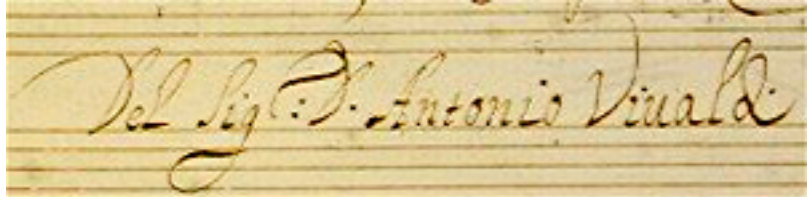 Del Sig: D. Antonio Viuald: